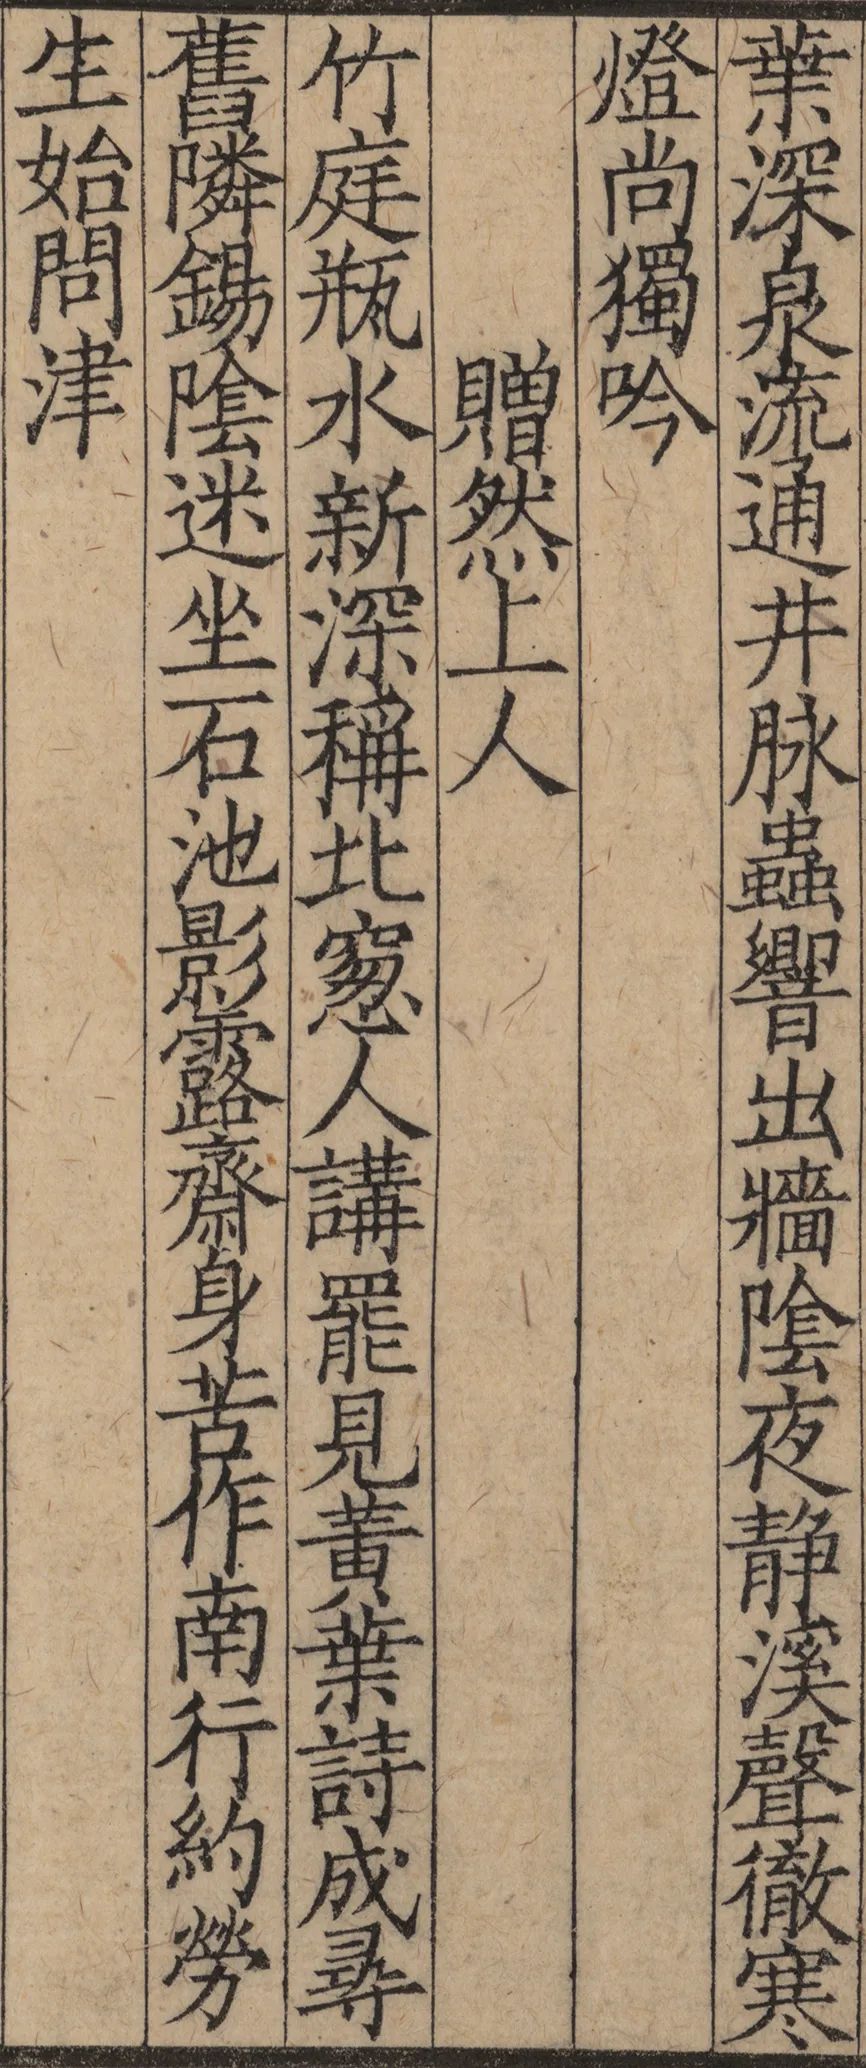 葉深泉流通井脉蟲響出牆陰夜静溪聲徹寒
燈尚獨吟
贈然上人
竹庭瓶水新深稱北窓人講罷見黃葉詩成尋
舊隣錫陰迷坐石池影露齋身苦作南行約勞
生始問津